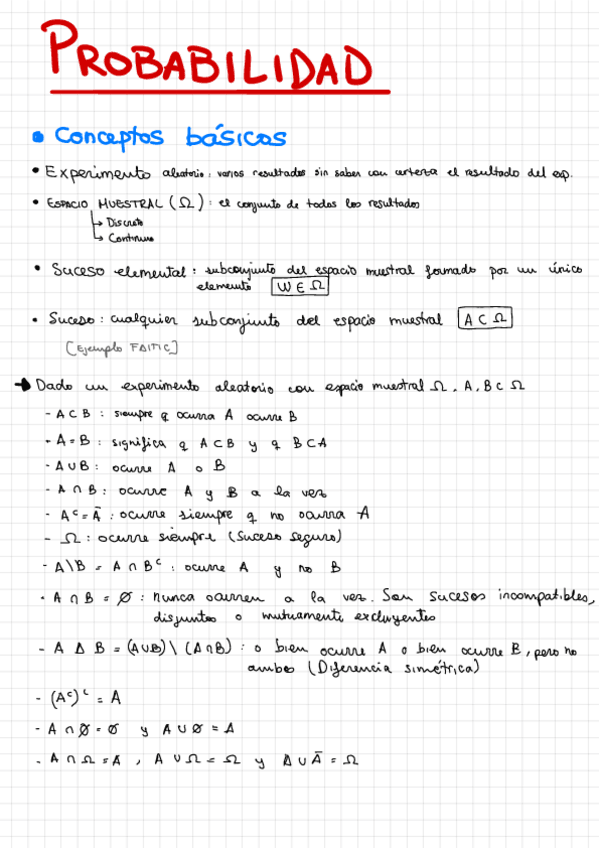 PROBABILIDAD
• Conceptos básicos
• Experimento aleatorio: varios resultados sin saber con certeza el resultado del exp.
• ESPACIO MUESTRAL (Ω): el conjunto de todos los resultados
↳ Discreto
↳ Continuo
• Suceso elemental: subconjunto del espacio muestral formado por un único
elemento W ∈ Ω
• Suceso: cualquier subconjunto del espacio muestral A ⊂ Ω
[Ejemplo FAITIC]
→ Dado un experimento aleatorio con espacio muestral Ω. A, B ⊂ Ω
- A ⊂ B: siempre q ocurra A ocurre B
- A = B: significa q A ⊂ B y q B ⊂ A
- A ∪ B: ocurre A o B
- A ∩ B: ocurre A y B a la vez
- Aᶜ = Ā: ocurre siempre q no ocurra A
- Ω: ocurre siempre (Suceso seguro)
- A\B = A ∩ Bᶜ: ocurre A y no B
- A ∩ B = ∅: nunca ocurren a la vez. Son sucesos incompatibles,
disjuntos o mutuamente excluyentes
- A Δ B = (A∪B) \ (A∩B): o bien ocurre A o bien ocurre B, pero no
ambos (Diferencia simétrica)
- (Aᶜ)ᶜ = A
- A ∩ ∅ = ∅ y A ∪ ∅ = A
- A ∩ Ω = A, A ∪ Ω = Ω y A ∪ Ā = Ω